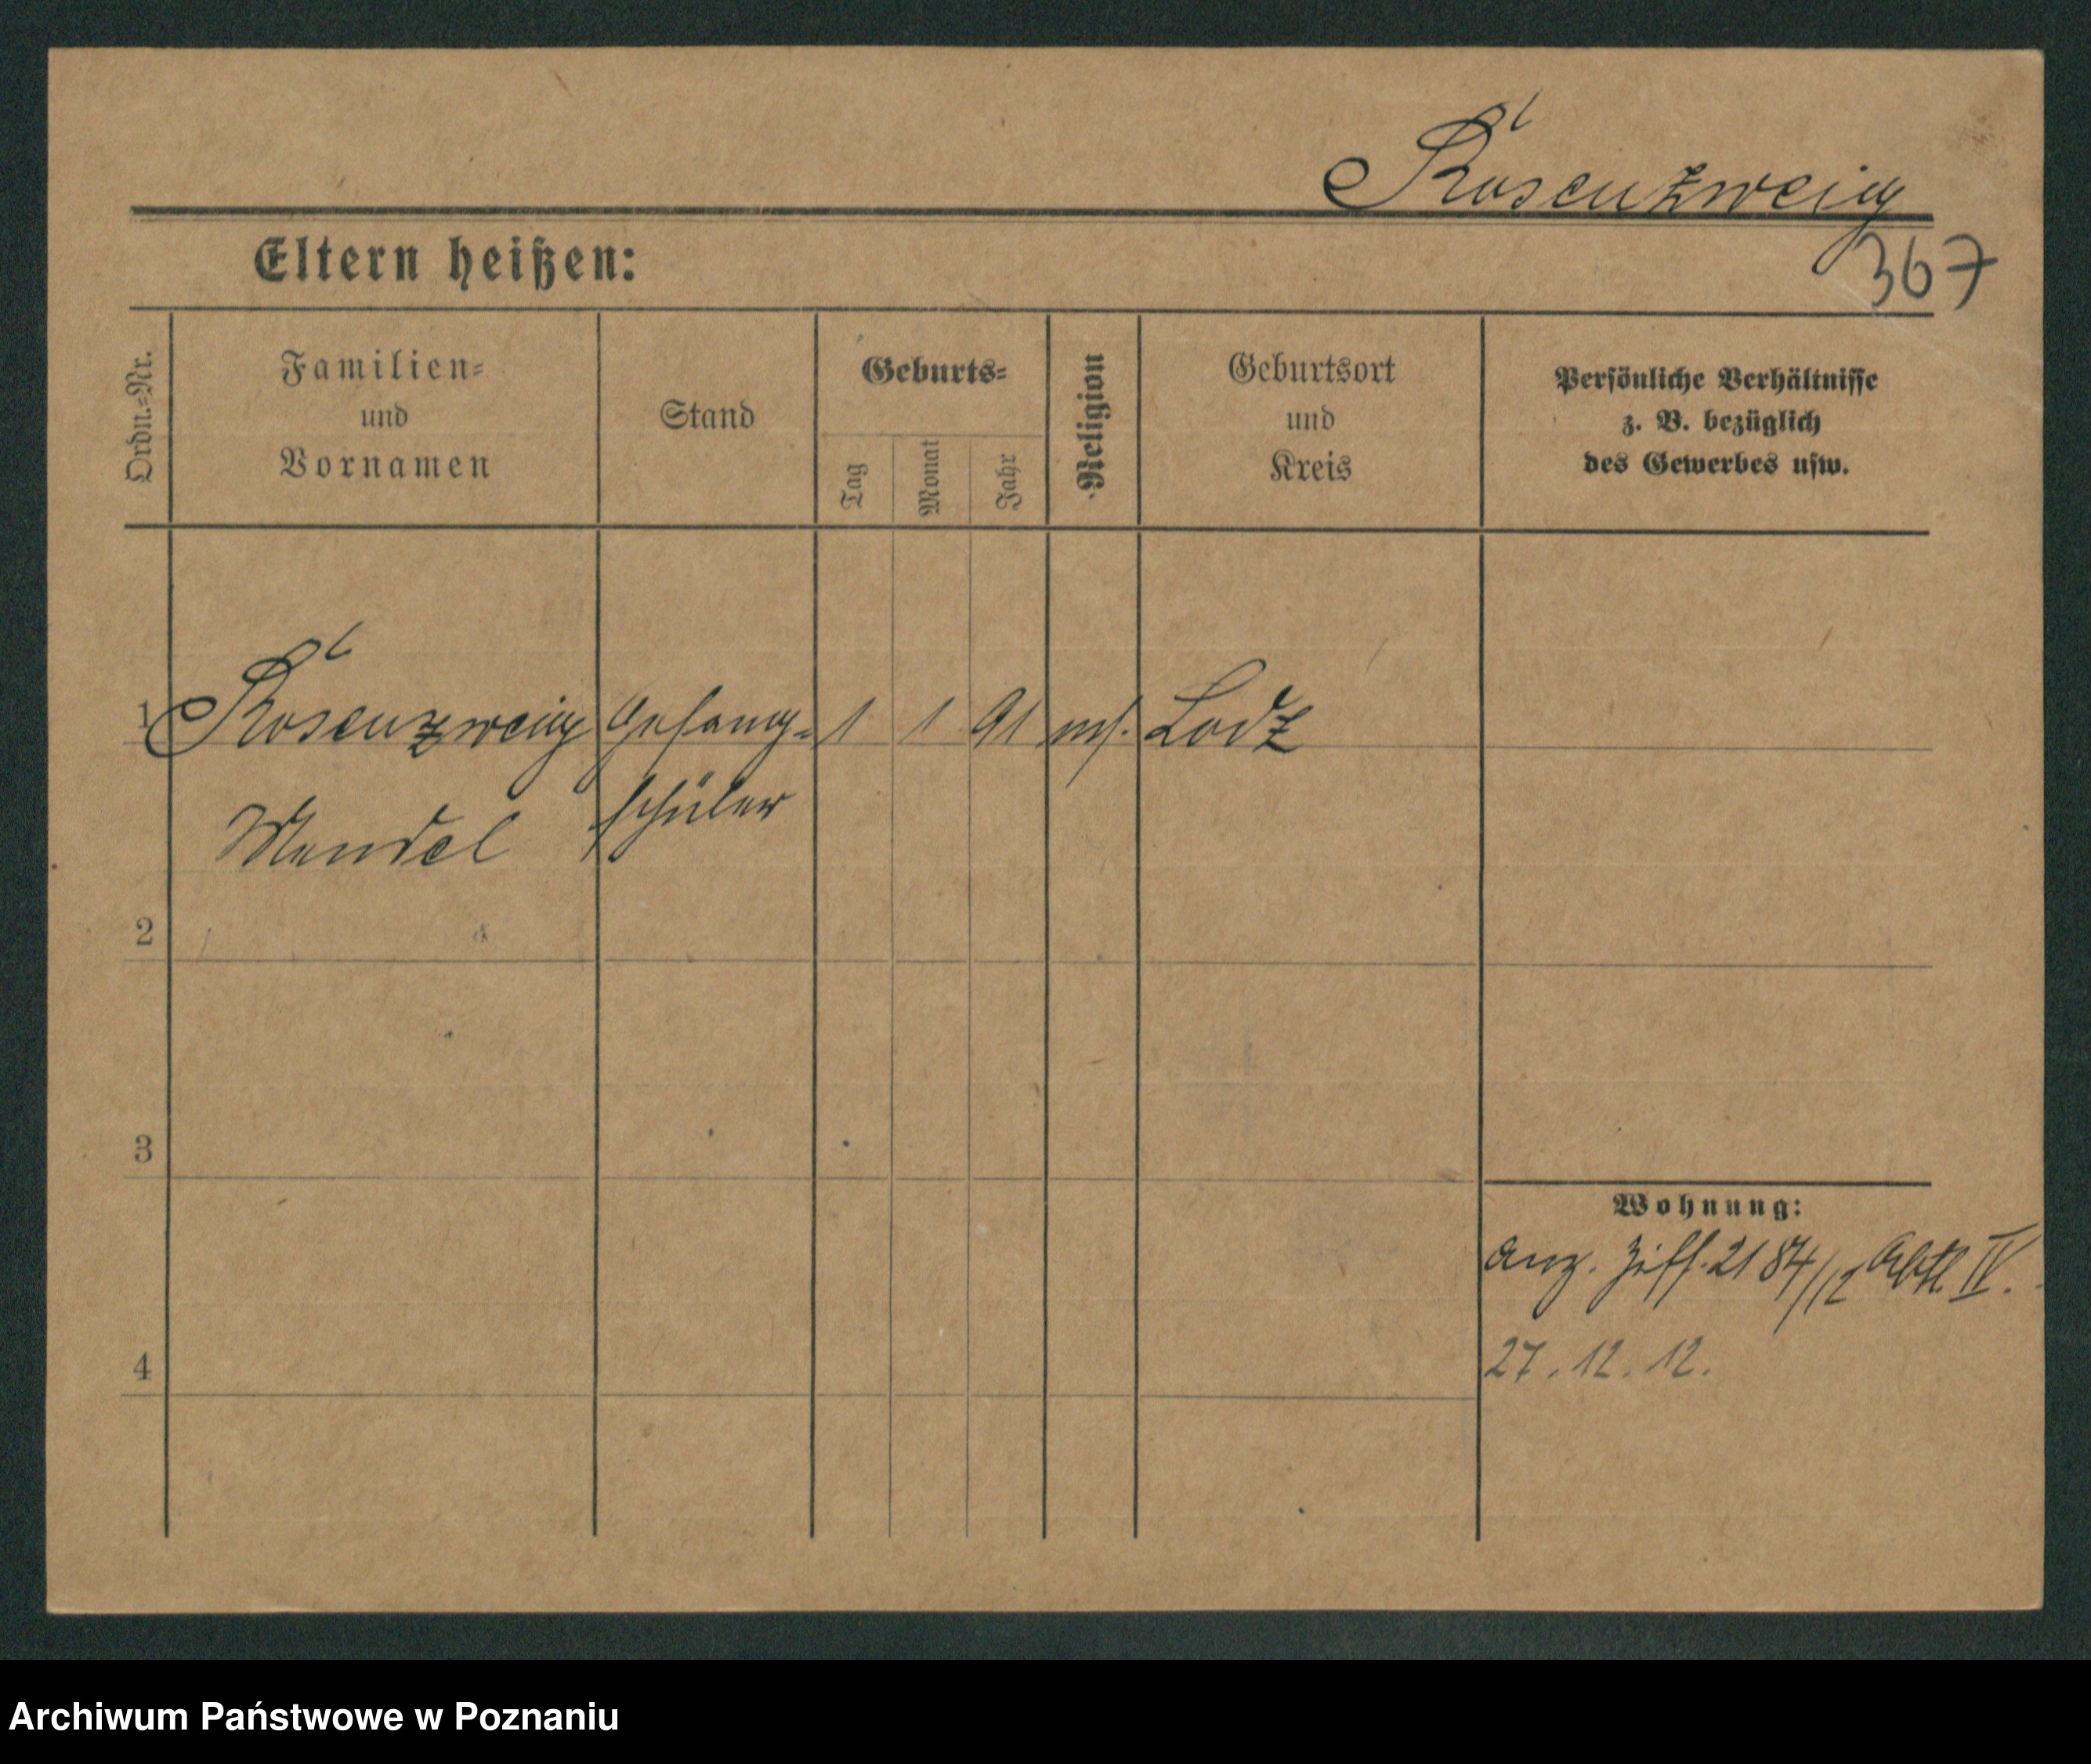 Rosenzweig
367
Eltern heißen:
Ordn.=Nr.
Familien=
und
Vornamen
Stand
Geburts=
Tag
Monat
Jahr
Religion
Geburtsort
und
Kreis
Persönliche Verhältnisse
z. B. bezüglich
des Gewerbes usw.
1 Rosenzweig Gesang= 1 1 91 ms. Lodz
Mendel schüler
2
3
Wohnung:
Anz. Ziff. 2184/12 Abtl. IV.
27.12.12.
4
Archiwum Państwowe w Poznaniu